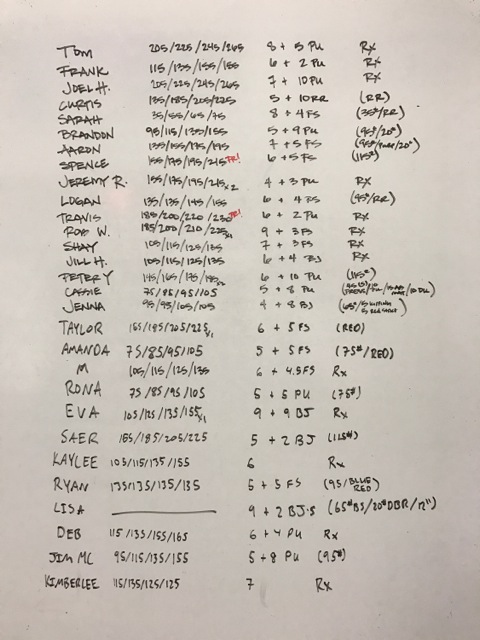 TOM 205/225/245/265 8 + 5 PU RX
FRANK 115/135/155/155 6 + 2 PU RX
JOEL H. 205/225/245/265 7 + 10 PU RX
CURTIS 135/185/205/225 5 + 10 RR (RR)
SARAH 35/55/65/75 8 + 4 FS (35#/RR)
BRANDON 95/115/135/155 5 + 9 PU (95#/20")
AARON 135/155/175/195 7 + 5 FS (95#/20")
SPENCE 155/175/195/215 PR! 6 + 5 FS (115#)
JEREMY R. 155/175/195/215 x2 4 + 3 PU RX
LOGAN 135/135/145/155 6 + 4 FS (95#/RR)
TRAVIS 185/200/220/230 PR! 6 + 2 PU RX
ROB W. 185/200/210/225 x1 9 + 3 FS RX
SHAY 105/115/125/135 7 + 3 FS RX
JILL H. 105/115/125/135 6 + 4 BJ RX
PETER Y 145/165/175/185 6 + 10 PU (115#)
CASSIE 75/85/95/105 5 + 8 PU
JENNA 95/95/105/105 4 + 8 BJ
TAYLOR 165/185/205/225 x1 6 + 5 FS (RED)
AMANDA 75/85/95/105 5 + 5 FS (75#/RED)
M 105/115/125/135 6 + 4.5FS Rx
RONA 75/85/95/105 5 + 5 PU (75#)
EVA 105/125/135/155 x1 9 + 9 BJ Rx
SAER 165/185/205/225 5 + 2 BJ (115#)
KAYLEE 105/115/135/155 6 Rx
RYAN 135/135/135/135 5 + 5 FS (95/BLUE RED)
LISA 9 + 2 BJ·S (65#BS/20#DBR/12")
DEB 115/135/155/165 6 + 4 PU Rx
JIM MC 95/115/135/155 5 + 8 PU (95#)
KIMBERLEE 115/135/125/125 7 Rx